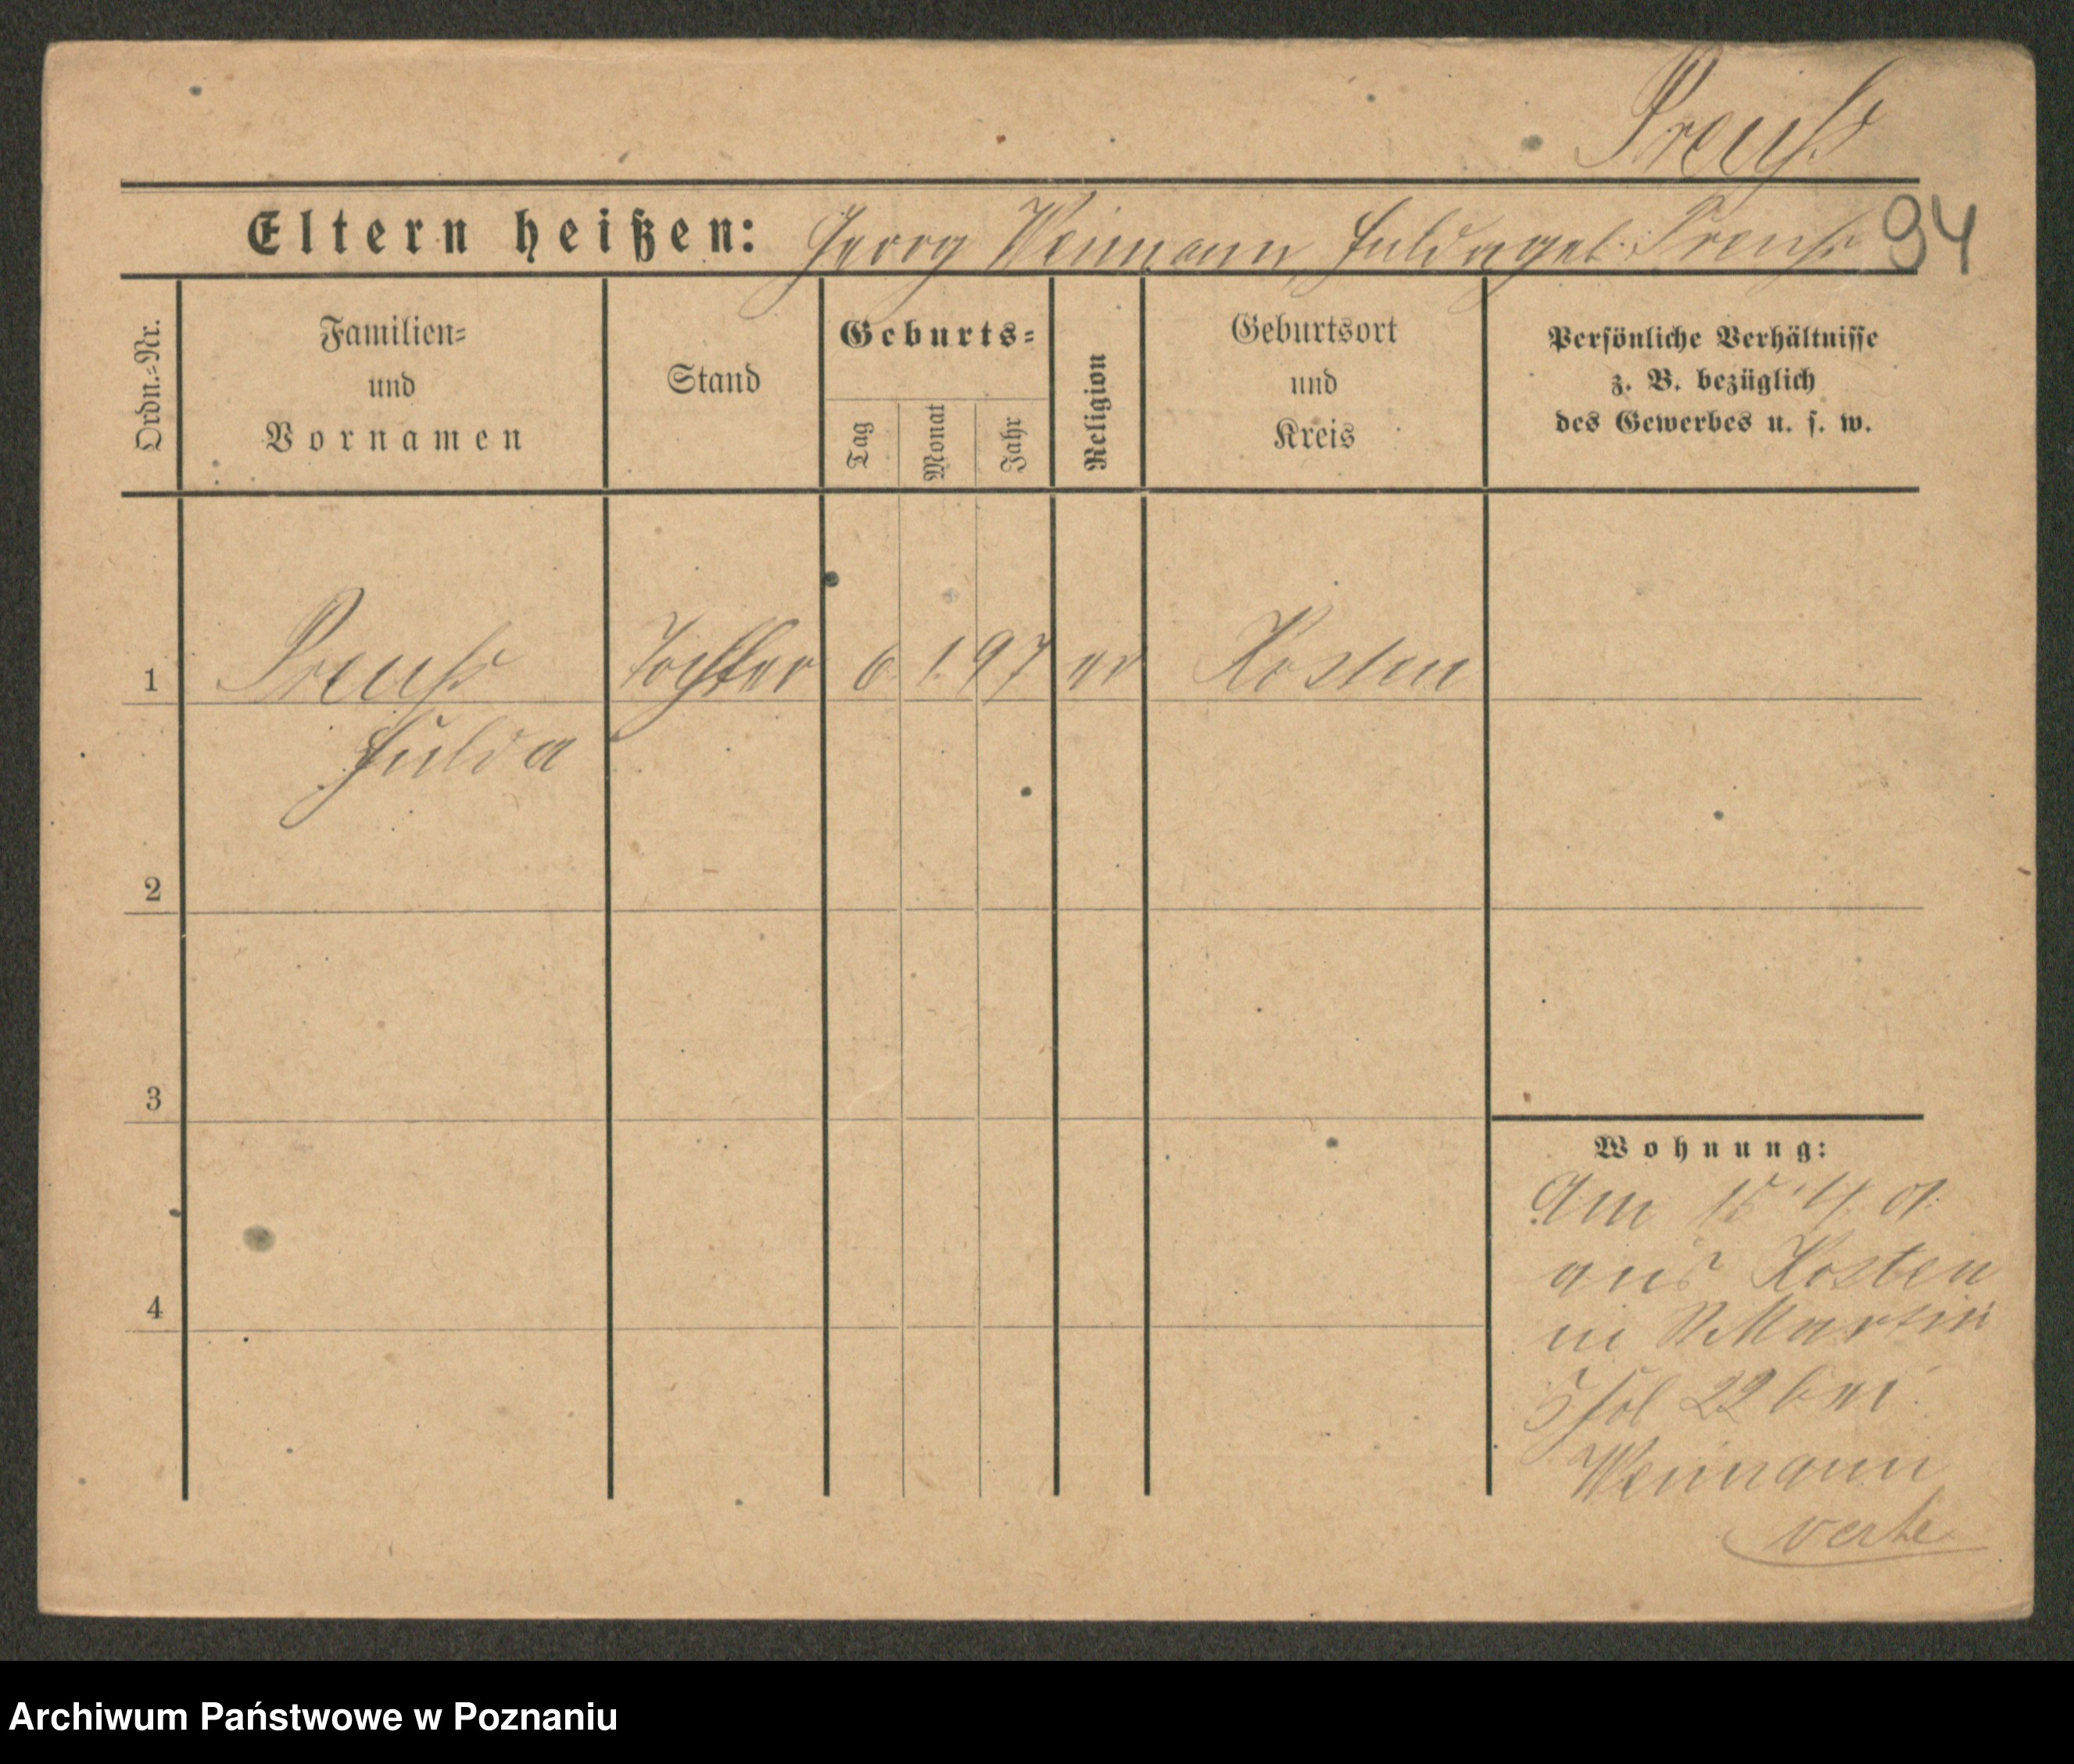 Preuß
Eltern heißen: Georg Weimann, Hulda geb. Preuß 94
Ordn.-Nr.
Familien- und Vornamen
Stand
Geburts-
Tag
Monat
Jahr
Religion
Geburtsort und Kreis
Persönliche Verhältnisse
z. B. bezüglich
des Gewerbes u. s. w.
1 Preuß Tochter 6. 1. 97 ev Kosten
Hulda
2
3
4
Wohnung:
Am 15.4.01.
aus Kosten
in St Martin
22 bei
Weimann
verte
Archiwum Państwowe w Poznaniu